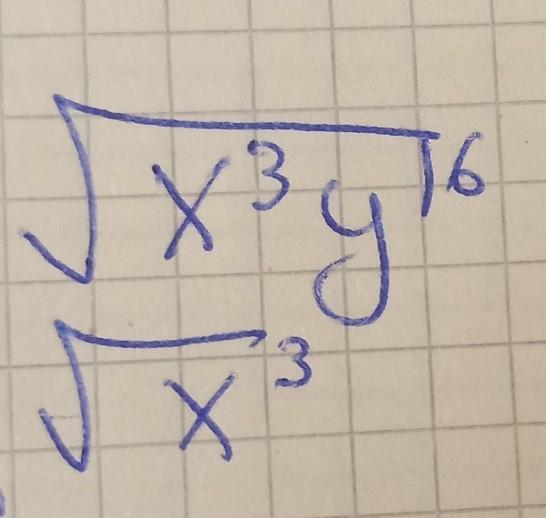 $\sqrt{x^3 y}^6$
$\sqrt{x}^3$